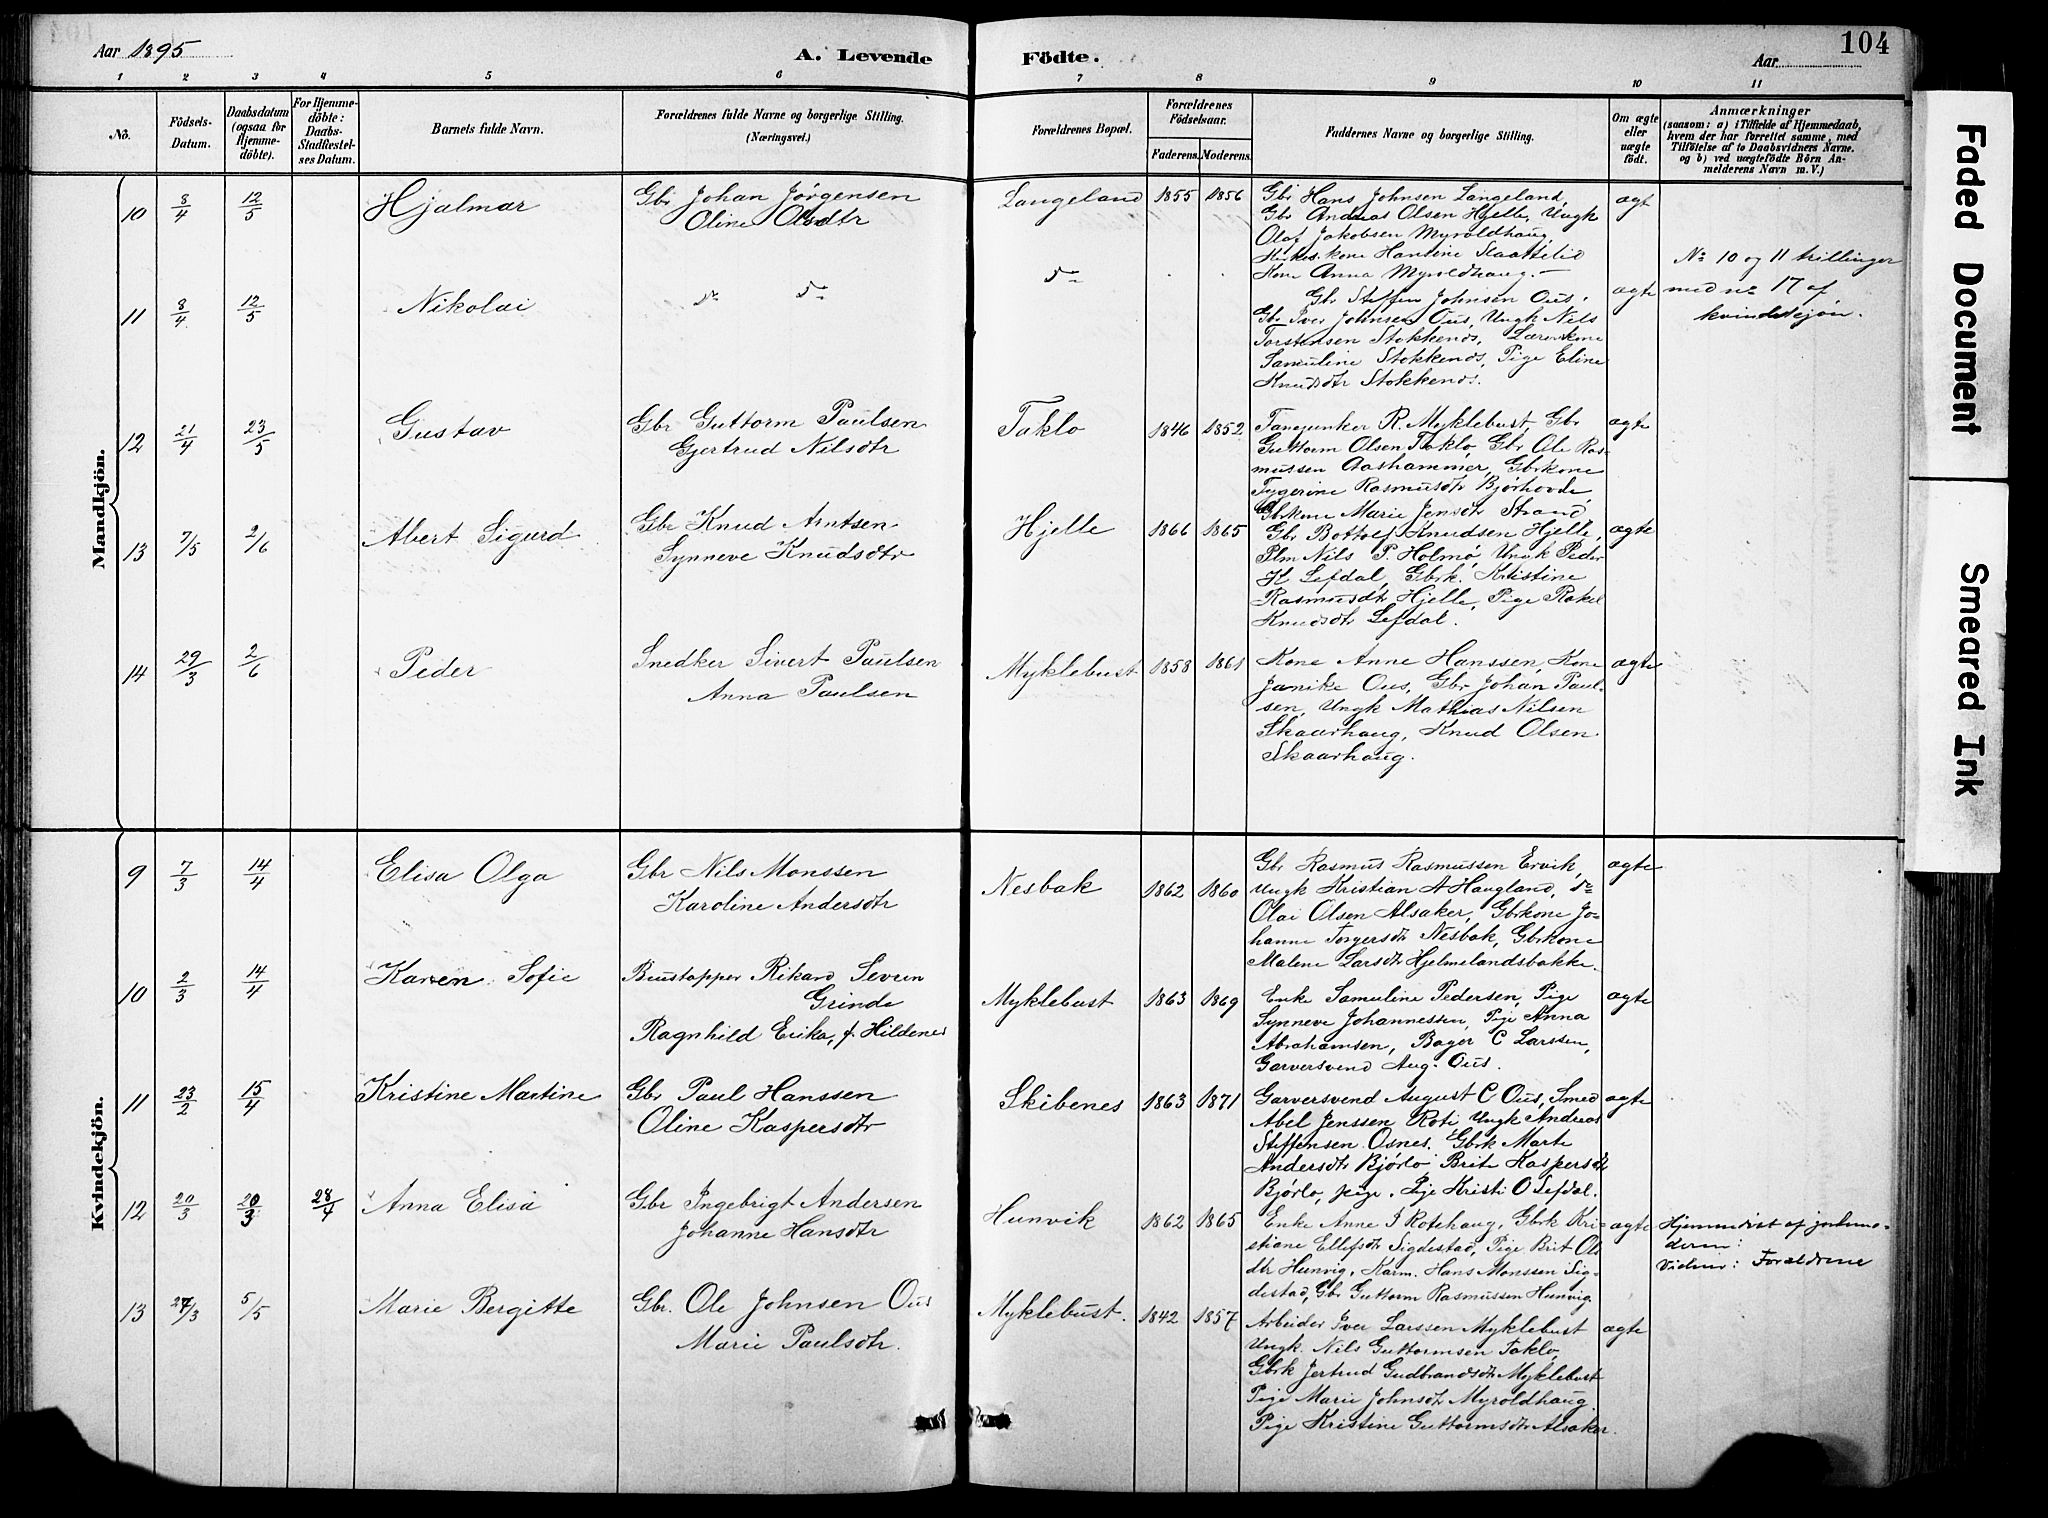 Aar 1895
A. Levende
Födte.
Aar
104
1 2 3 4 5 6 7 8 9 10 11
No.
Födsels-
Datum.
Daabsdatum
(ogsaa for
Hjemme-
döbte).
For Hjemme-
döbte:
Daabs-
Stadfæstel-
ses Datum.
Barnets fulde Navn.
Forældrenes fulde Navne og borgerlige Stilling.
(Næringsvei.)
Forældrenes Bopæl.
Forældrenes
Födselsaar.
Faderens. Moderens.
Faddernes Navne og borgerlige Stilling.
Om ægte
eller
uægte
födt.
Anmærkninger
(saasom: a) i Tilfælde af Hjemmedaab,
hvem der har forrettet samme, med
Tilföielse af to Daabsvidners Navne.
og b) ved uægtefödte Börn An-
melderens Navn m. V.)
Mandkjön.
10 8/4 12/5 Hjalmar Gbr Johan Jørgensen Langeland 1855 1856 Gbr Hans Johnsen Langeland, ægt
Oline Olsdtr Gbr Andreas Olsen Hjelle, Ungk
Olaf Jakobsen Myroldhaug
kone Hansine Slaattelid
Kone Anna Myroldhaug.
No 10 og 11 trillinger
med no 17 af
kvindekjøn.
11 8/4 12/5 Nikolai do do do Gbr Steffen Johnsen Ous, ægte
Gbr Iver Johnsen Ous, Ungk Nils
Torstensen Stokkenes, Lærerkone
Samuline Stokkenes, Pige Eline
Knudsdtr Stokkenes.
12 21/4 23/5 Gustav Gbr Guttorm Paulsen Taklo 1846 1852 Fanejunker R. Myklebust, Gbr ægte
Gjertrud Nilsdtr Guttorm Olsen Taklo, Gbr Ole Ras-
mussen Aashammer, Gbrkone
Rasmusdtr Bjørhovde
Gbrkone Marie Jensdtr Strand
13 7/5 2/6 Albert Sigurd Gbr Knud Arntsen Hjelle 1866 1865 Gbr Bottolf Knudsen Hjelle, ægte
Synneve Knudsdtr Plm Nils P. Holmø, Ungk Peder
K Lefdal, Gbrk. Kristine
Rasmusdtr Hjelle, Pige Rakel
Knudsdtr Lefdal.
14 29/3 2/6 Peder Snedker Sivert Paulsen Myklebust 1858 1861 Kone Anne Hanssen, Kone ægte
Anna Paulsen Janike Ous, Gbr Johan Paul-
sen, Ungk Mathias Nilsen
Skaarhaug, Knud Olsen
Skaarhaug.
Kvindekjön.
9 7/3 14/4 Elisa Olga Gbr Nils Monssen Nesbak 1862 1860 Gbr Rasmus Rasmussen Ervik, ægte
Karoline Andersdtr Ungk Kristian A Haugland, do
Olai Olsen Alsaker, Gbrkone Jo-
hanne Torgersdtr Nesbak, Gbrkone
Malene Larsdtr Hjelmelandsbakke.
10 2/3 14/4 Karen Sofie Buntapper Rikard Severin Myklebust 1863 1869 Enke Samuline Pedersen, Pige ægte
Grinde Synneve Johannessen, Pige Anna
Ragnhild Erika, f. Hildenes Abrahamsen, Bager C Larssen,
Garversvend Aug. Ous.
11 23/2 15/4 Kristine Martine Gbr Paul Hanssen Skibenes 1863 1871 Garversvend August C Ous, Smed ægte
Oline Kaspersdtr Abel Jenssen Roti Ungk Andreas
Steffensen Osnes. Gbrk Marte
Andersdtr Bjørlo Brite Kaspersdtr
Bjørlo, pige. Pige Kristi O Lefdal.
12 20/3 20/3 28/4 Anna Elisa Gbr Ingebrigt Andersen Hunvik 1862 1865 Enke Anne J Rotehaug, Gbrk Kri- ægte
Johanne Hansdtr stiane Ellefsdtr Sigdestad, Pige Brit Ols
dtr Hunvig, Karm. Hans Monssen Sig-
destad, Gbr Guttorm Rasmussen Hunvig
Hjemmedøbt af jordmo-
deren:
Vidner: Forældrene
13 27/3 5/5 Marie Bergitte Gbr. Ole Johnsen Ous Myklebust. 1842 1857 Arbeider Iver Larssen Myklebust ægte
Marie Paulsdtr. Ungk. Nils Guttormsen Taklo,
Gbrk Jertrud Gudbrandsdtr Myklebust
Pige Marie Johnsdtr Myroldhaug
Pige Kristine Guttormsdtr Alsaker.
Faded Document
Smeared Ink